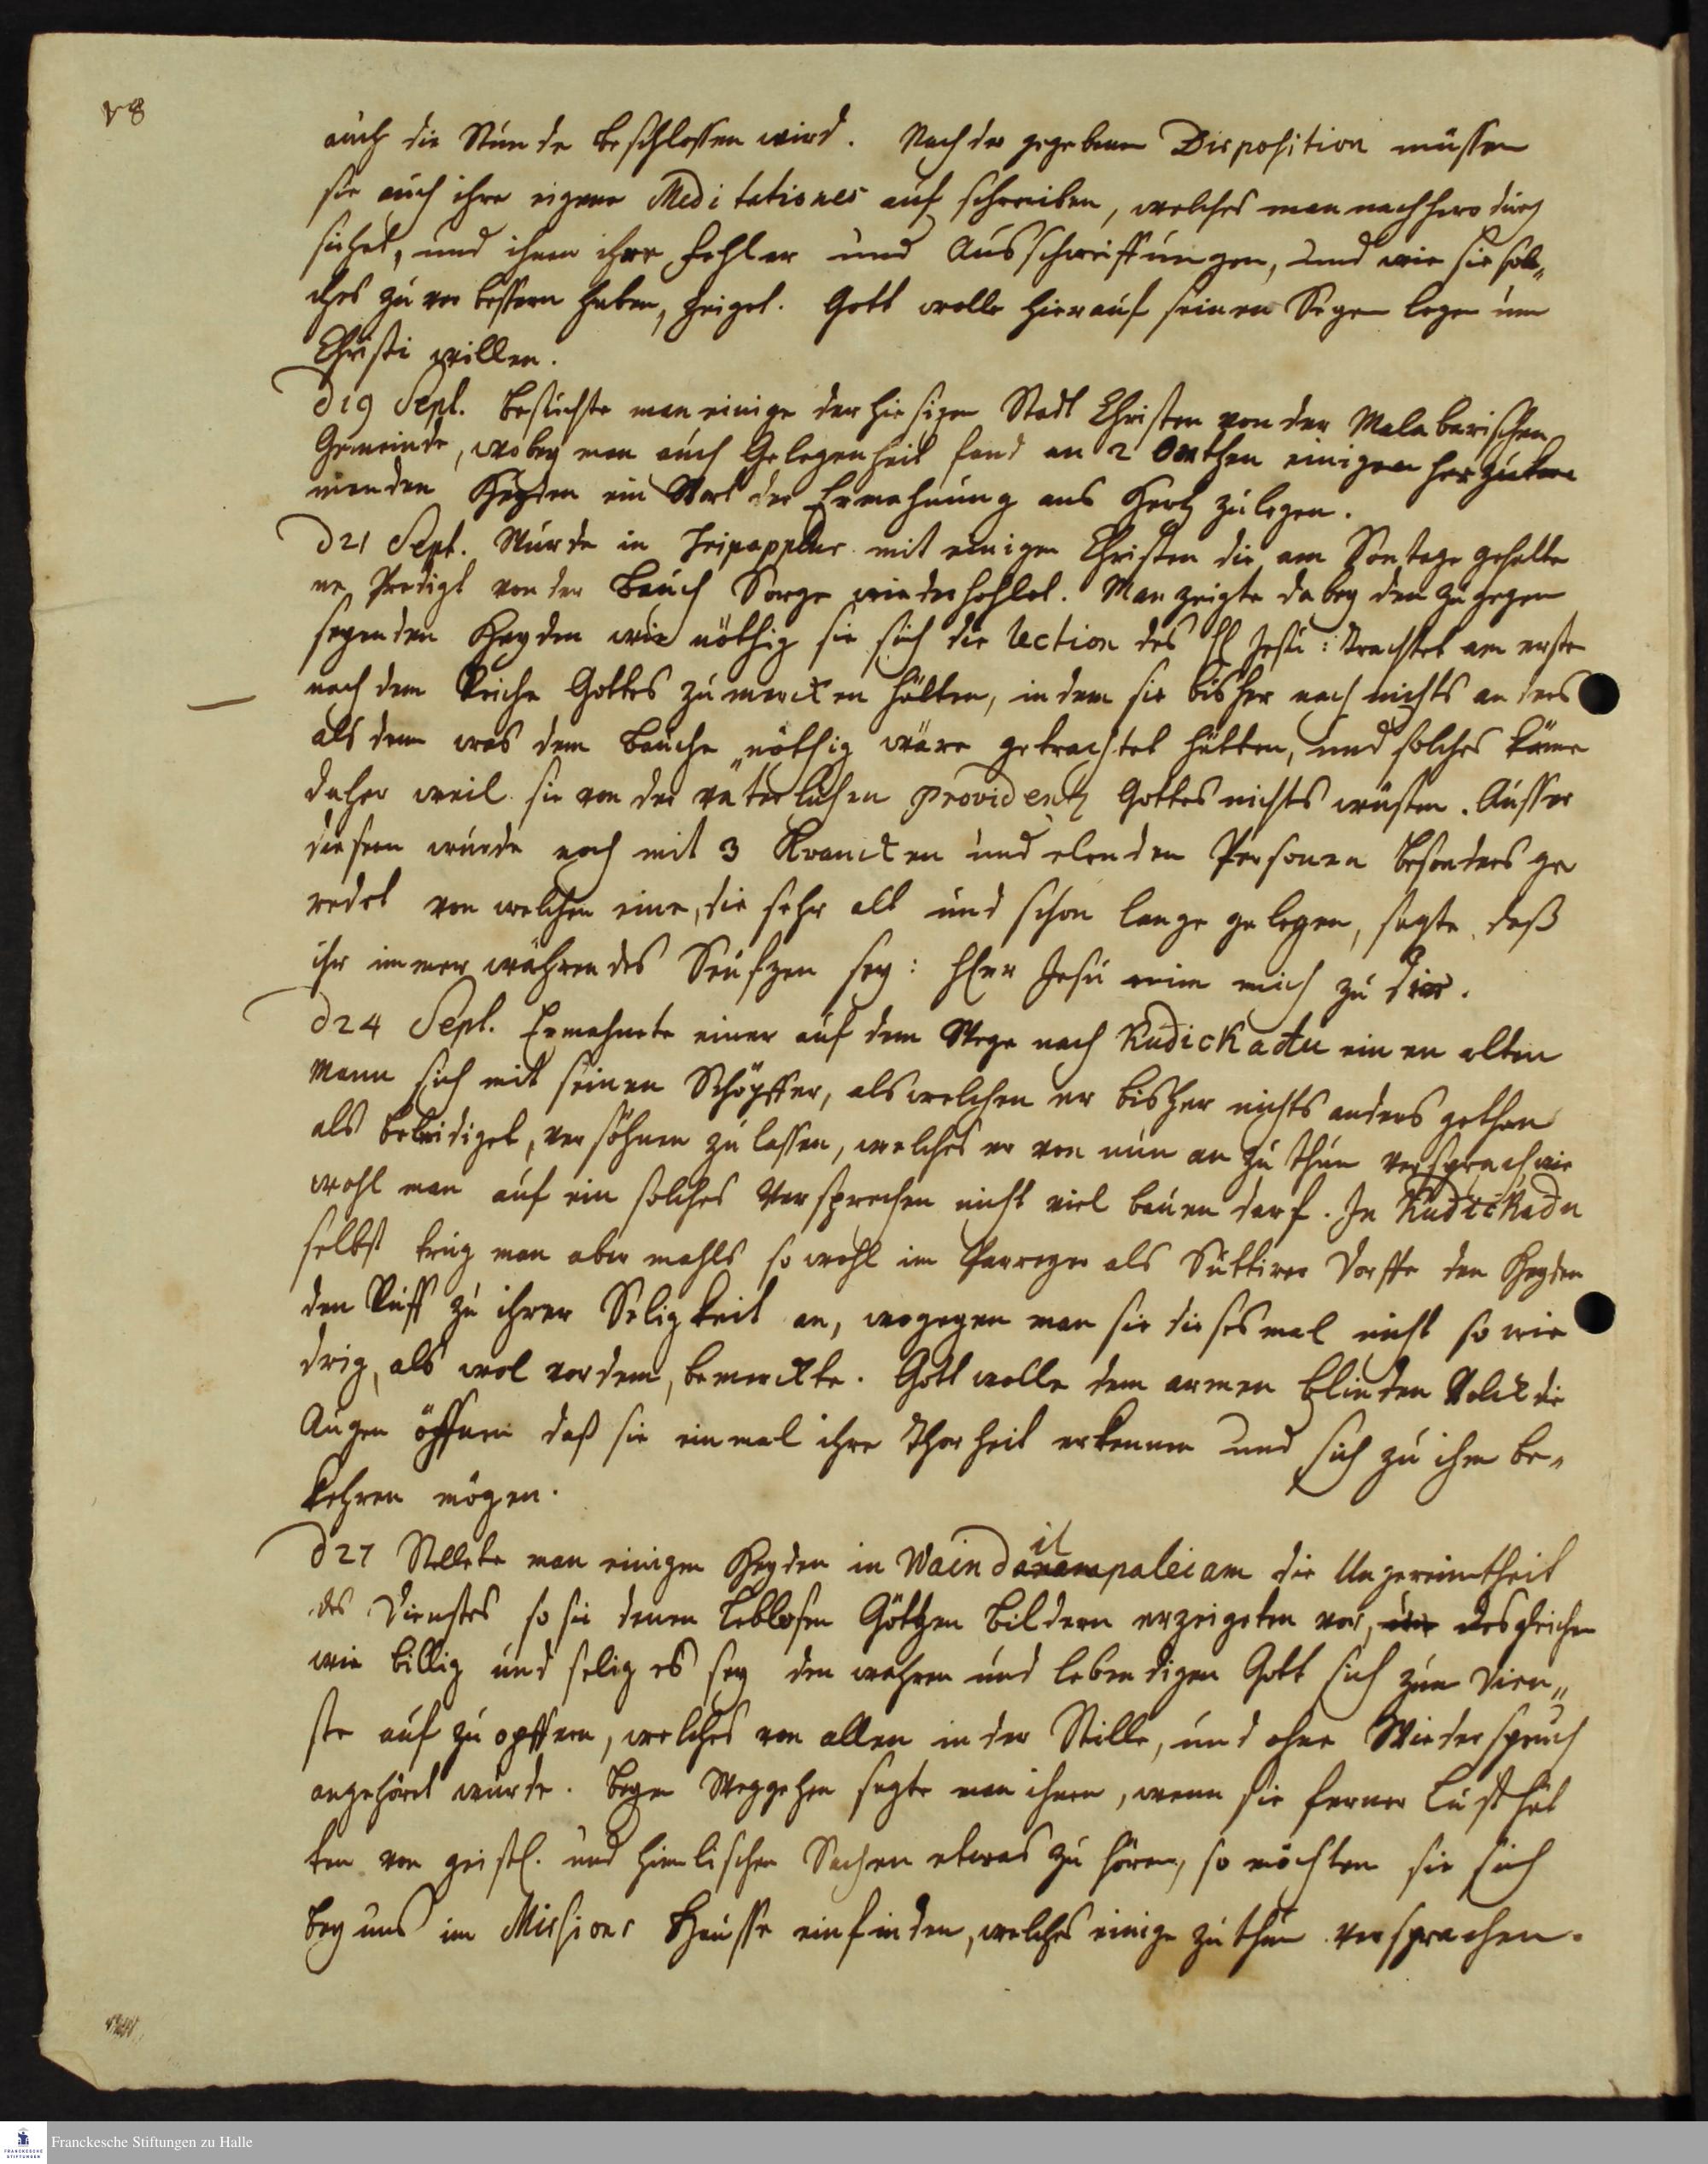 auch die Stunde beschlossen wird. Nach der gegebenen Disposition müssen
sie auch ihre eigene Meditationes aufschreiben, welches man nachhero durch
siehet, und ihnen ihre Fehler und Ausschweiffungen, und wie sie sol„
ches zu verbessern haben, zeiget. Gott wolle hierauf seinen Segen legen um
Christi willen.
d 19 Sept. besuchte man einige der hiesigen Stadt Christen von der Malabarischen
Gemeinde, wobey man auch Gelegenheit fand an 2 Orthen einigen herzukom
menden Heyden ein Wort der Ermahnung ans Hertz zu legen.
d 21 Sept. Wurde in Tripappalur mit einigen Christen die am Sontage gehalte
ne Predigt von der Bauch Sorge wiederhohlet. Man zeigte dabey den zugegen
seyenden Heyden wie nöthig sie sich die Lection des H Jesu: Trachtet am erste
nach dem Reiche Gottes zu mercken hätten, indem sie bisher nach nichts anders
als dem was dem Bauche nöthig wäre getrachtet hätten, und solches käme
daher weil sie von der väterlichen Providentz Gottes nichts wüsten. Ausser
diesem wurde noch mit 3 Krancken und elenden Personen besonders ge
redet von welchen eine, die sehr alt und schon lange gelegen, sagte, daß
ihr immerwährendes Seufzen sey: HErr Jesu nim mich zu dir.
d 24 Sept. Ermahnete einer auf dem Wege nach Kudickadu einen alten
Mann sich mit seinen Schöpffer, als welchen er bisher nichts anders gethan
als beleidiget, versöhnen zu lassen, welches er von nun an zu thun versprach wie
wohl man auf ein solches Versprechen nicht viel bauen darf. In Kudickadu
selbst trug man abermahls so wohl im Parreyer als Suttirer Dorffe den Heyden
den Ruff zu ihrer Seligkeit an, wogegen man sie diesesmal nicht so wie
drig, als wol vordem, bemerckte. Gott wolle dem armen blinden Volck die
Augen öffnen daß sie einmal ihre Thorheit erkennen und sich zu ihm be„
kehren mögen.
d 27 Stellete man einigen Heyden in Waindailpaleiam die Ungereimtheit
des Dienstes so sie denen leblosen Götzen Bildern erzeigeten vor, desgleichen
wie billig und selig es sey den wahren und lebendigen Gott sich zum Dien„
ste auf zu opffern, welches von allen in der Stille, und ohne Wiederspruch
angehöret wurde. Beym Weggehen sagte man ihnen, wenn sie ferner Lust hät
ten von geistl. und himlischen Sachen etwas zu hören, so möchten sie sich
bey uns im Missions Hausse einfinden, welches einige zu thun versprachen.
Franckesche Stiftungen zu Halle